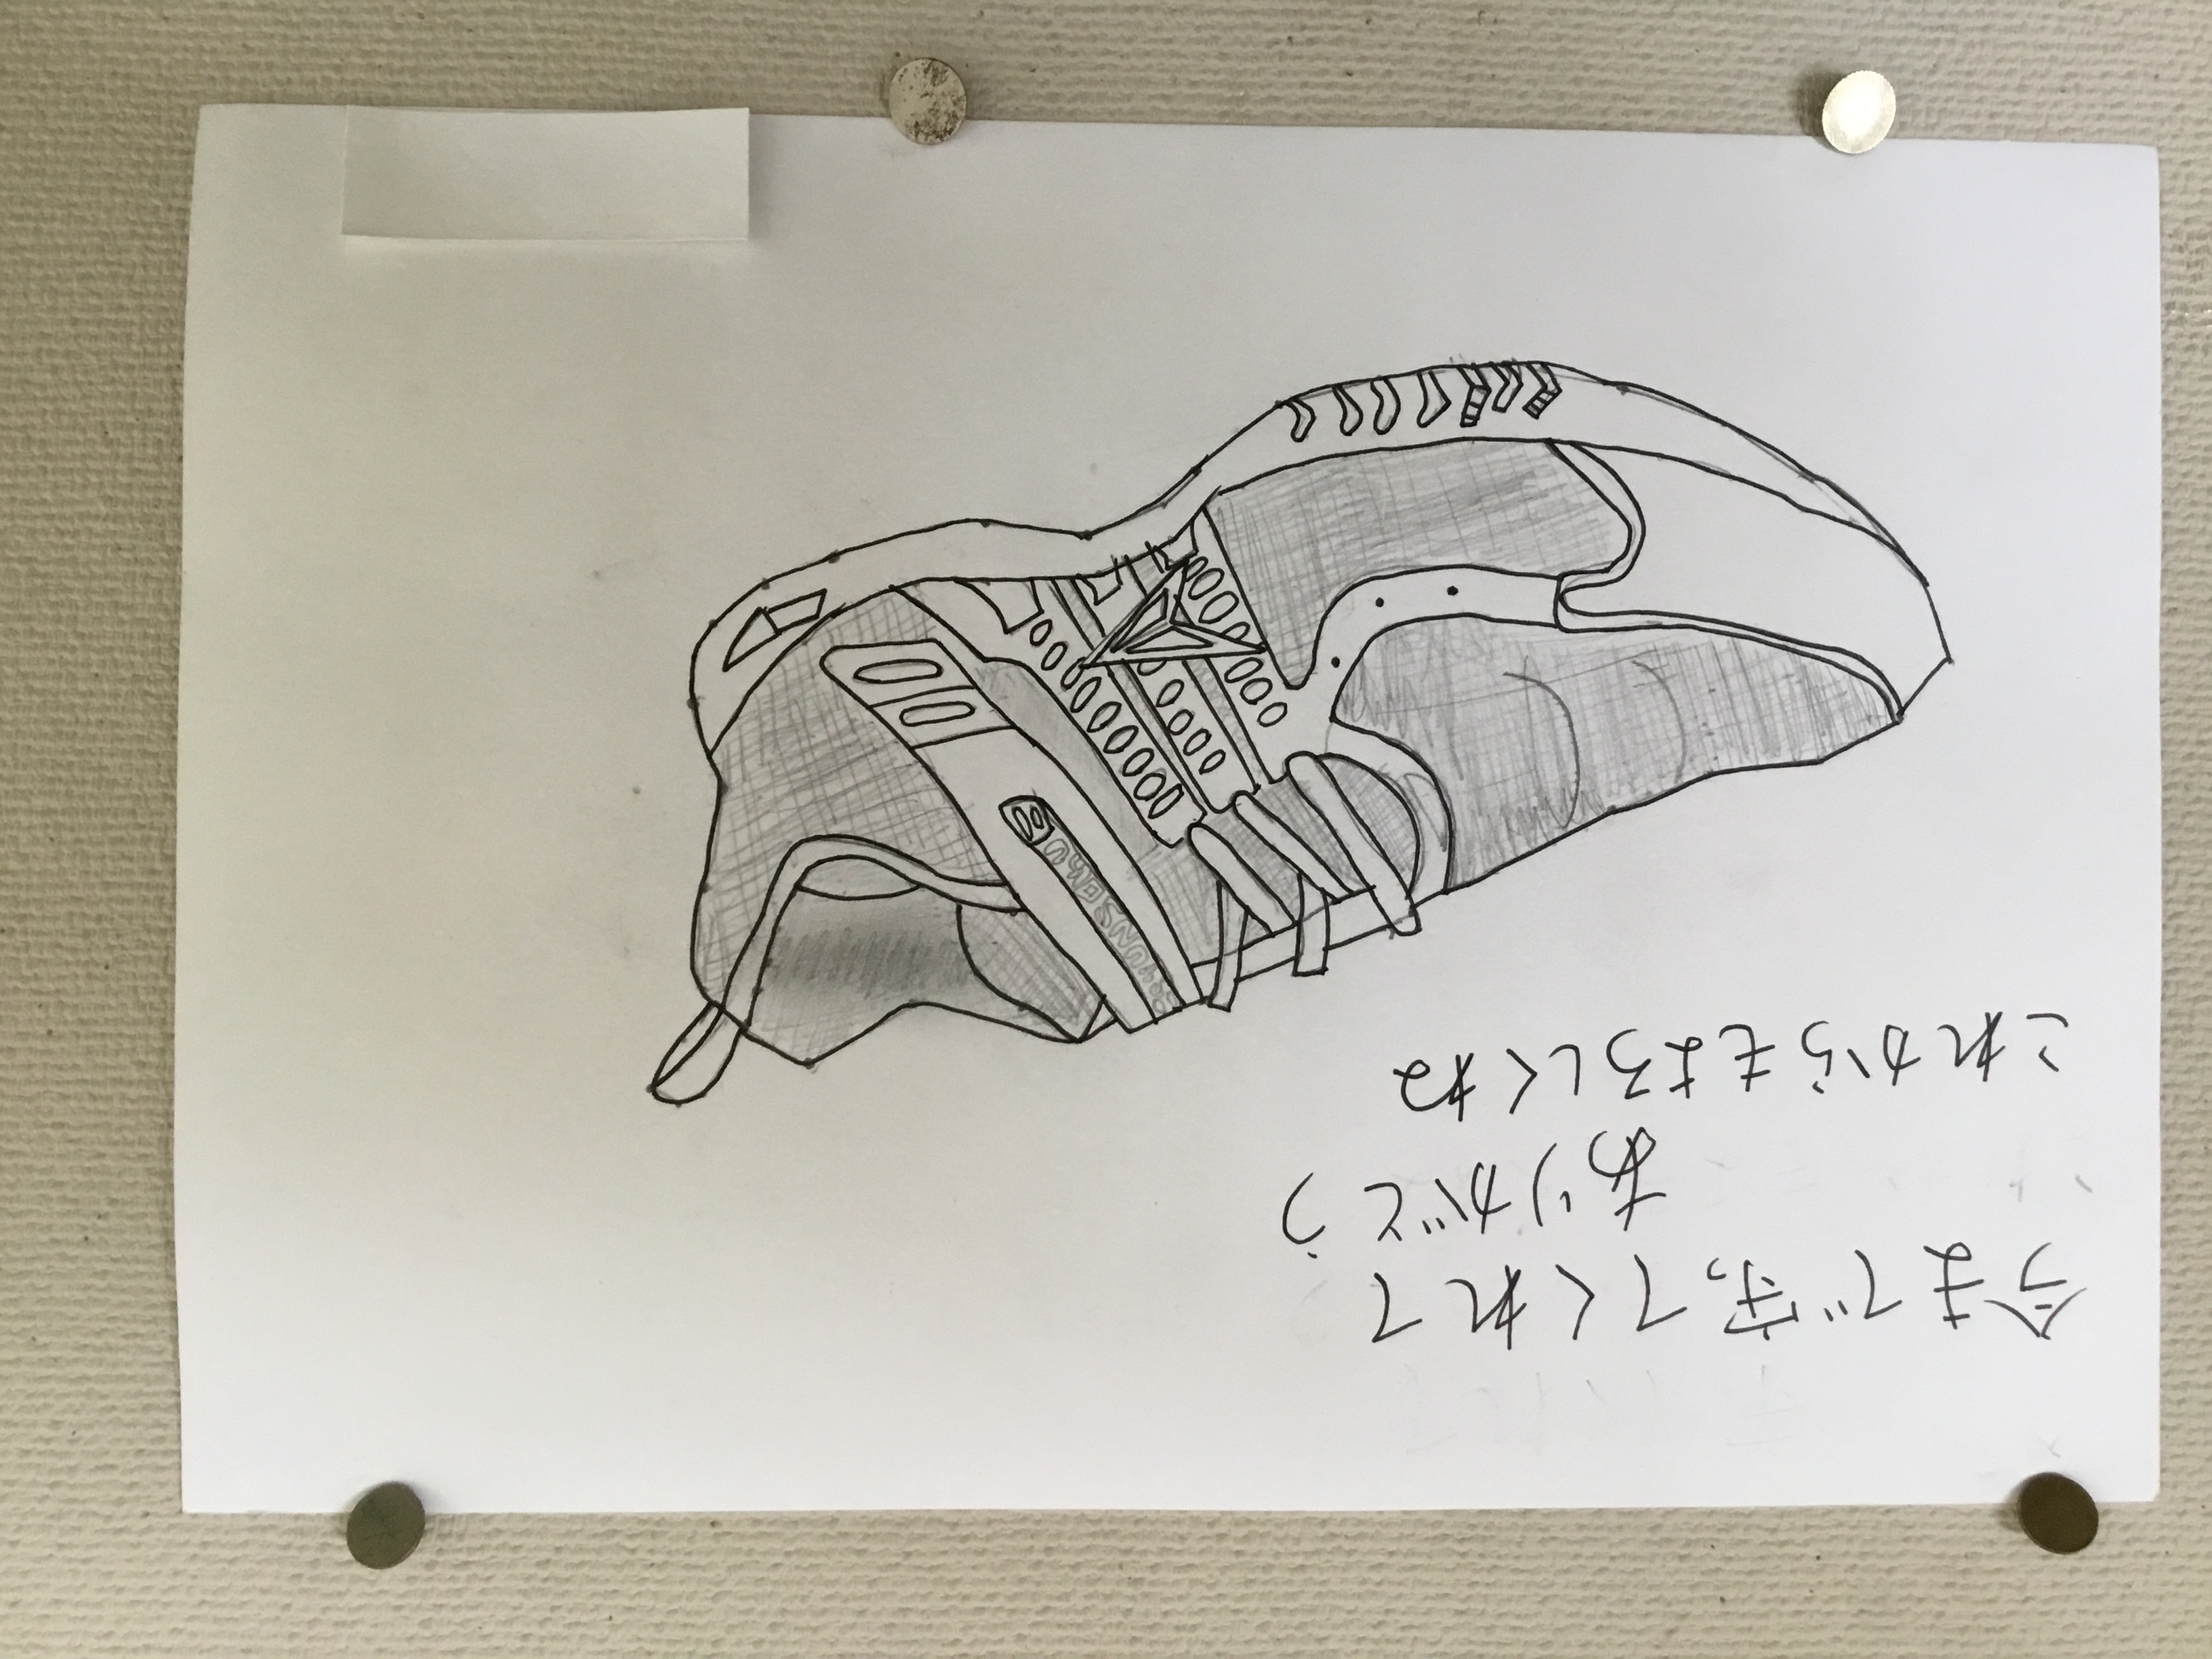 今まで守ってくれて
ありがとう
これからもよろしくね